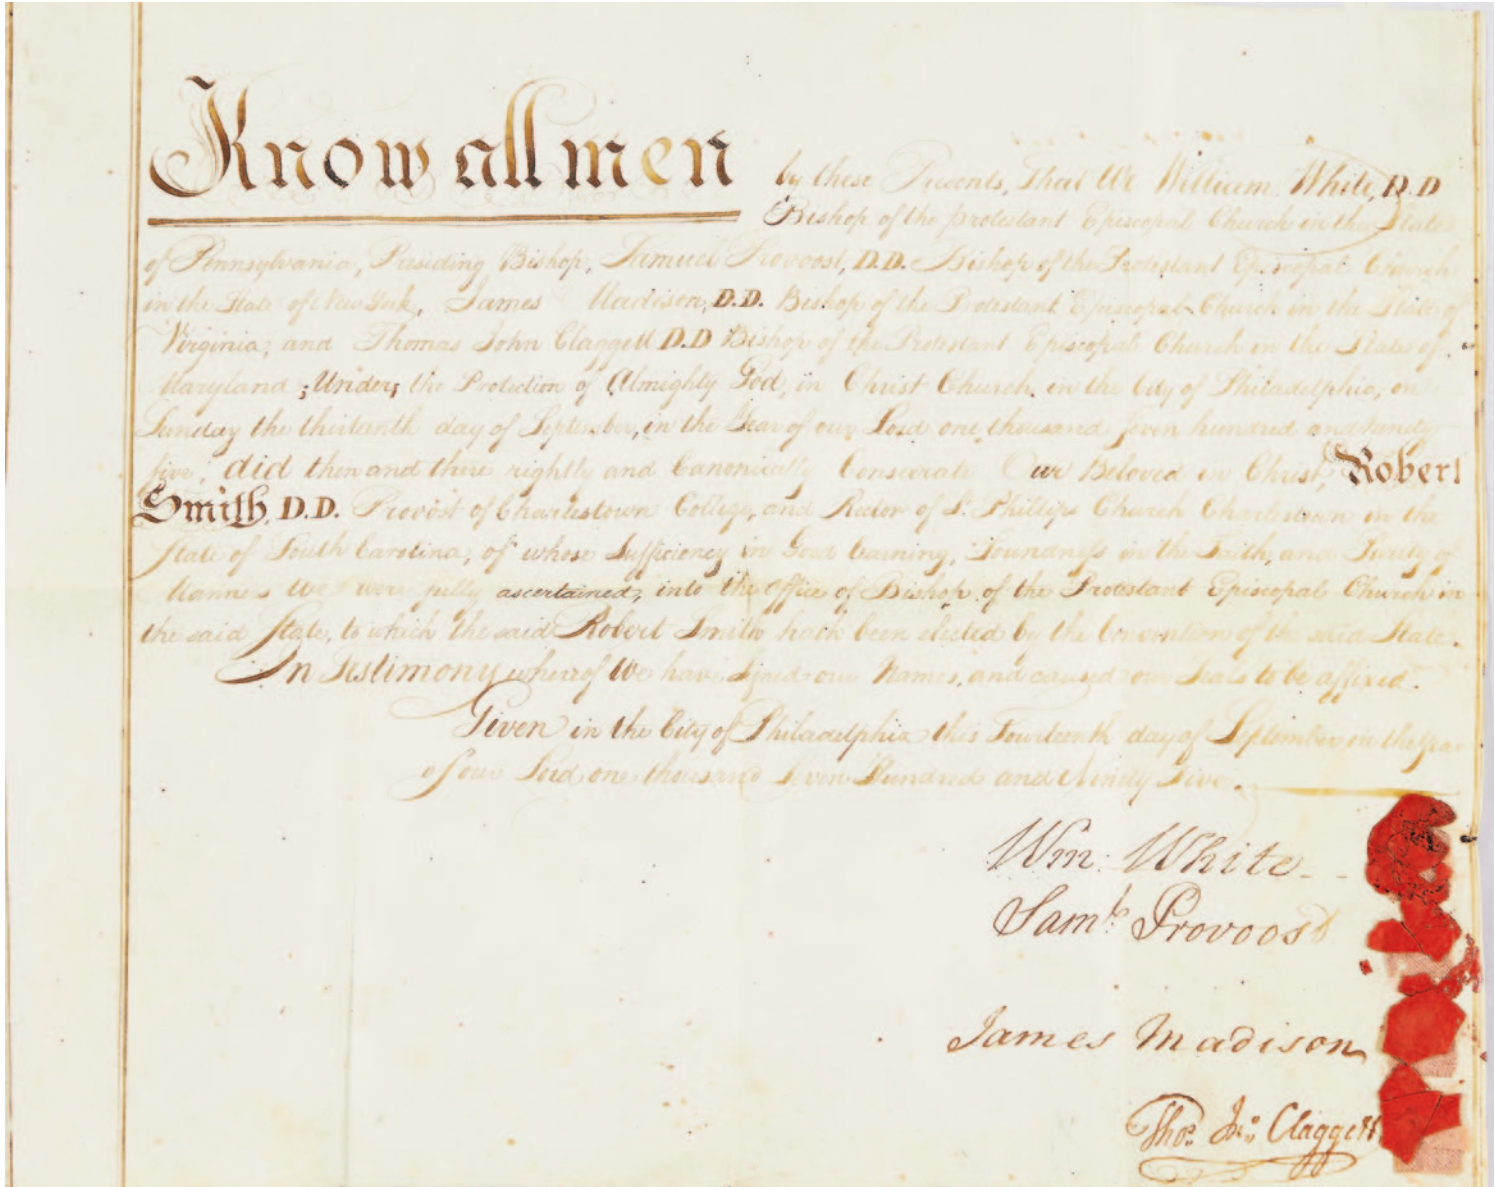 Know all men by these Presents, That We William White, D.D
Bishop of the Protestant Episcopal Church in the State
of Pennsylvania, Presiding Bishop, Samuel Provoost, D.D. Bishop of the Protestant Episcopal Church
in the State of New York, James Madison, D.D. Bishop of the Protestant Episcopal Church in the State of
Virginia; and Thomas John Claggett D.D Bishop of the Protestant Episcopal Church in the State of
Maryland; Under, the Protection of Almighty God, in Christ Church, in the City of Philadelphia, on
Sunday the thirteenth day of September, in the Year of our Lord one thousand seven hundred and ninety
five, did then and there rightly and Canonically Consecrate Our Beloved in Christ, Robert
Smith, D.D. Provost of Charlestown College, and Rector of St. Phillips Church Charlestown in the
State of South Carolina, of whose Sufficiency in Good Learning, Soundness in the Faith, and Purity of
Manners We were fully ascertained, into the Office of Bishop of the Protestant Episcopal Church in
the said State, to which the said Robert Smith hath been elected by the Convention of the said State.
In Testimony whereof We have signed our Names, and caused our Seals to be affixed.
Given in the City of Philadelphia this Fourteenth day of September in the Year
of our Lord one thousand Seven Hundred and Ninety Five.
Wm: White
Saml. Provoost
James Madison
Thos. Jno. Claggett